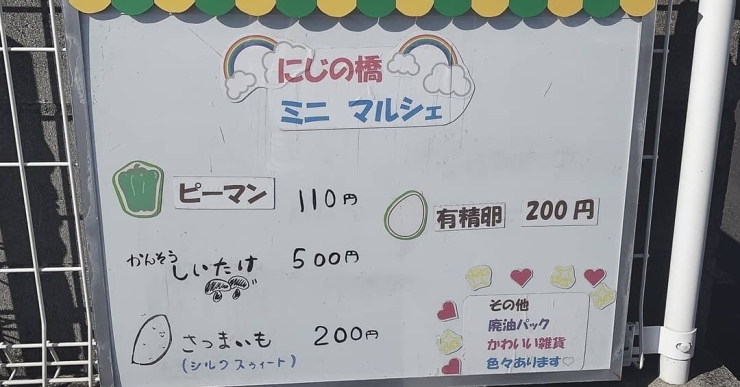 にじの橋
ミニ マルシェ
ピーマン 110円
有精卵 200円
かんそうしいたけ 500円
さつまいも 200円
(シルクスウィート)
その他
廃油パック
かわいい雑貨
色々あります♡